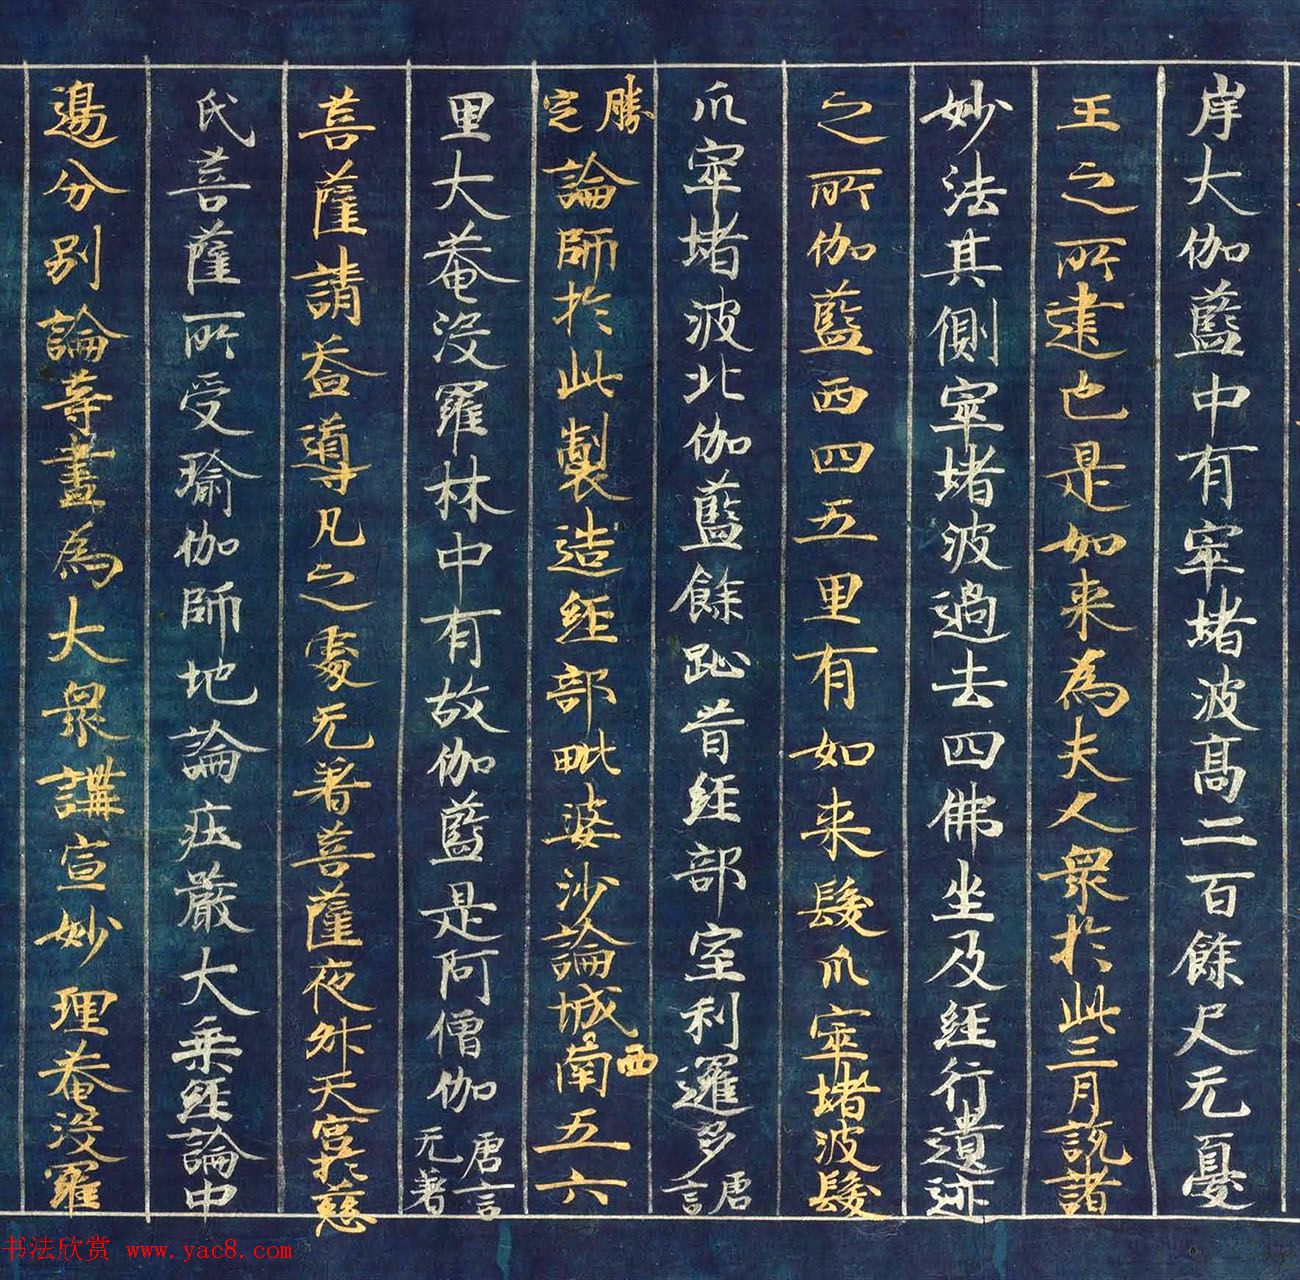 岸大伽藍中有窣堵波高二百餘尺无憂
王之所建也是如来為夫人衆於此三月說諸
妙法其側窣堵波過去四佛坐及経行遺迹
之所伽藍西四五里有如来髮爪窣堵波髮
爪窣堵波北伽藍餘趾昔経部室利邏多唐言
勝定論師於此製造経部毗婆沙論城西南五六
里大菴没羅林中有故伽藍是阿僧伽唐言无著
菩薩請益導凡之處无著菩薩夜昇天宮於慈
氏菩薩所受瑜伽師地論庄嚴大乗経論中
邊分別論等晝為大衆講宣妙理菴没羅
书法欣赏 www.yac8.com